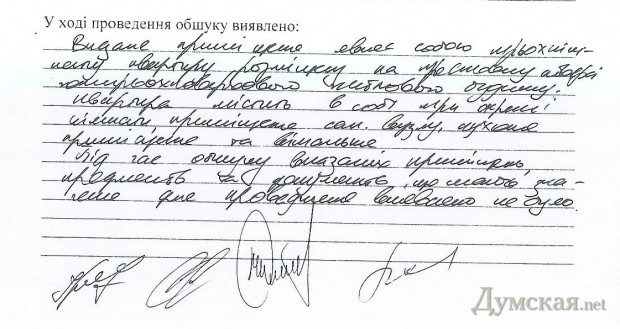 У ході проведення обшуку виявлено:
Видане приміщене являє собою трьохкім-
натну квартиру розміщену на поверсі
житлового будинку.
Квартира містить в собі три окремі
кімнати приміщене сан. вузлу, кухоне
приміщене та вітальне
Під час обшуку вказаних приміщень,
предметів та документів, що мають зна-
чене для проведення виявлено не було.
Думская.net